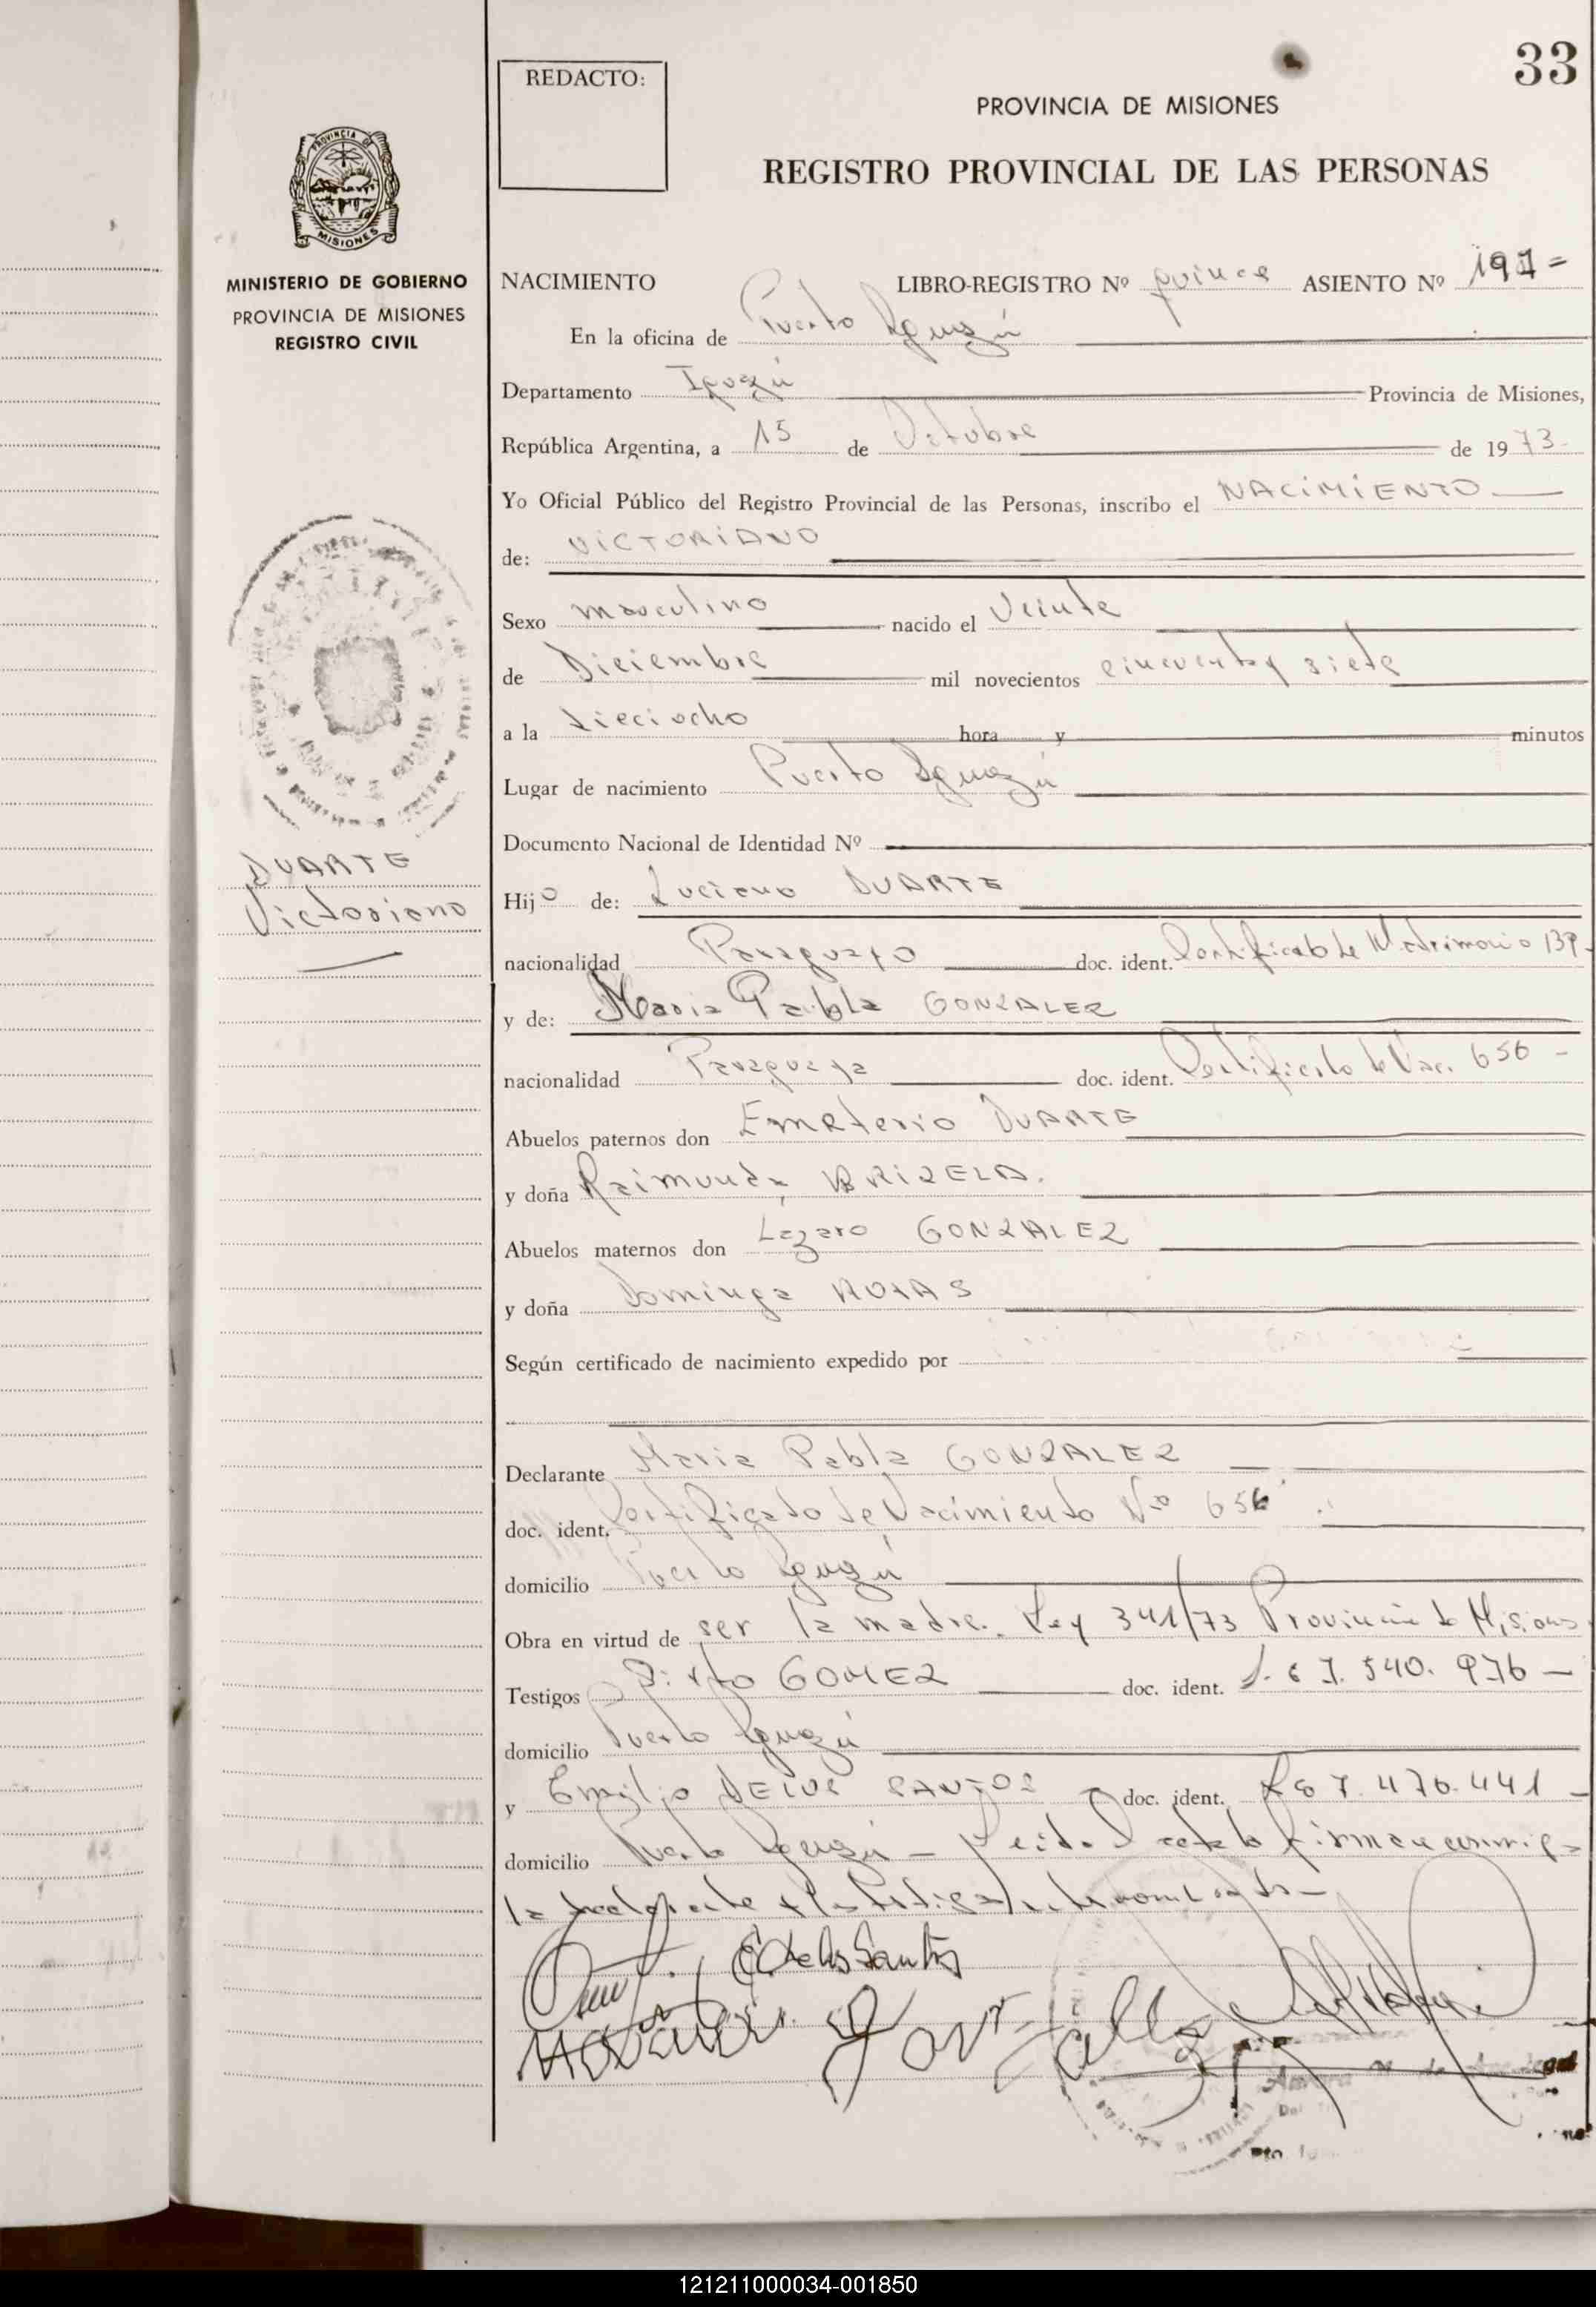 33
REDACTO:
PROVINCIA DE MISIONES
REGISTRO PROVINCIAL DE LAS PERSONAS
PROVINCIA DE
MISIONES
MINISTERIO DE GOBIERNO
PROVINCIA DE MISIONES
REGISTRO CIVIL
NACIMIENTO LIBRO-REGISTRO Nº quince ASIENTO Nº 191=
En la oficina de Puerto Iguazú
Departamento Iguazú Provincia de Misiones,
República Argentina, a 15 de Octubre de 1973-
Yo Oficial Público del Registro Provincial de las Personas, inscribo el NACIMIENTO
de: VICTORIANO
Sexo masculino nacido el Veinte
de Diciembre mil novecientos cincuenta y siete
a la dieciocho hora y minutos
Lugar de nacimiento Puerto Iguazú
Documento Nacional de Identidad Nº
DUARTE
Victoriano
Hijo de: Luciano DUARTE
nacionalidad Paraguayo doc. ident. Certificado de Matrimonio 139-
y de: Maria Pabla GONZALEZ
nacionalidad Paraguaya doc. ident. Certificado de Nac. 656 -
Abuelos paternos don Emeterio DUARTE
y doña Raimunda BRIZELA.
Abuelos maternos don Lazaro GONZALEZ
y doña Dominga ROJAS
Según certificado de nacimiento expedido por
Declarante Maria Pabla GONZALEZ
doc. ident. Certificado de Nacimiento Nº 656
domicilio Puerto Iguazú
Obra en virtud de ser la madre. Ley 341/73 Provincia de Misiones
Testigos GOMEZ doc. ident. 7.540.976 -
domicilio Puerto Iguazú
y Emilio DE LOS SANTOS doc. ident. 7.476.441 -
domicilio Puerto Iguazú - Leida el acta la firman conmigo
la declarante y los testigos
E De los Santos
121211000034-001850